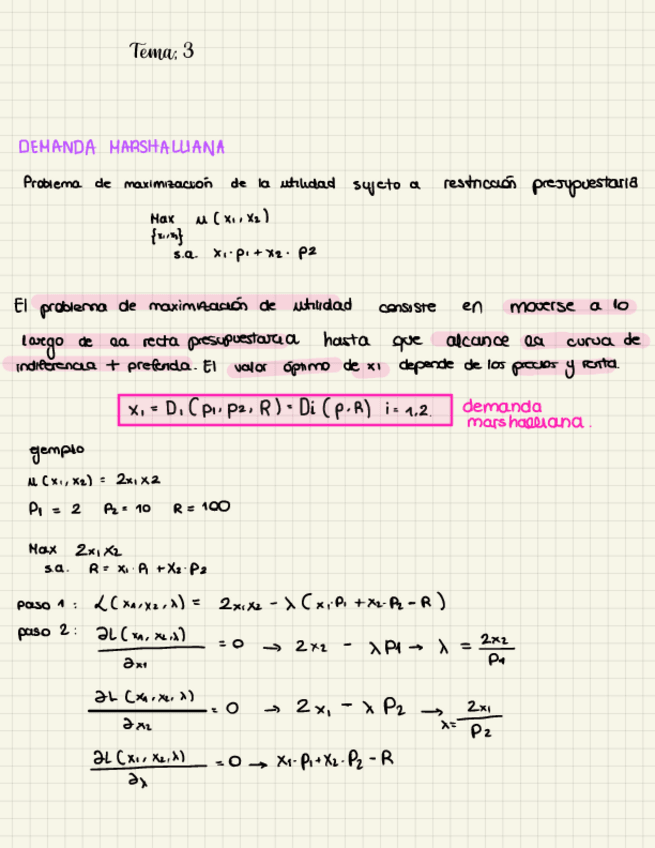 Tema: 3
DEMANDA MARSHALLIANA
Problema de maximización de la utilidad sujeto a restricción presupuestaria
Max u (x₁, x₂)
{x₁,x₂}
s.a. x₁·p₁ + x₂· p2
El problema de maximización de utilidad consiste en moverse a lo
largo de la recta presupuestaria hasta que alcance la curva de
indiferencia + preferida. El valor óptimo de x₁ depende de los precios y renta.
x₁ = D₁ (p₁, p₂, R) = Di (p.R) i = 1,2. demanda
marshalliana.
ejemplo
u (x₁, x₂) = 2x₁x2
P₁ = 2 P₂ = 10 R = 100
Max 2x₁x₂
s.a. R = x₁·P₁ + x₂·P₂
paso 1: L(x₁,x₂,λ) = 2x₁x₂ - λ (x₁·P₁ + x₂·P₂ - R)
paso 2: ∂L(x₁, x₂,λ) / ∂x₁ = 0 → 2x₂ - λP1 → λ = 2x₂ / P₁
∂L (x₁, x₂, λ) / ∂x₂ = 0 → 2x₁ - λ P₂ → λ= 2x₁ / P₂
∂L(x₁, x₂,λ) / ∂λ = 0 → x₁·P₁+x₂·P₂ - R